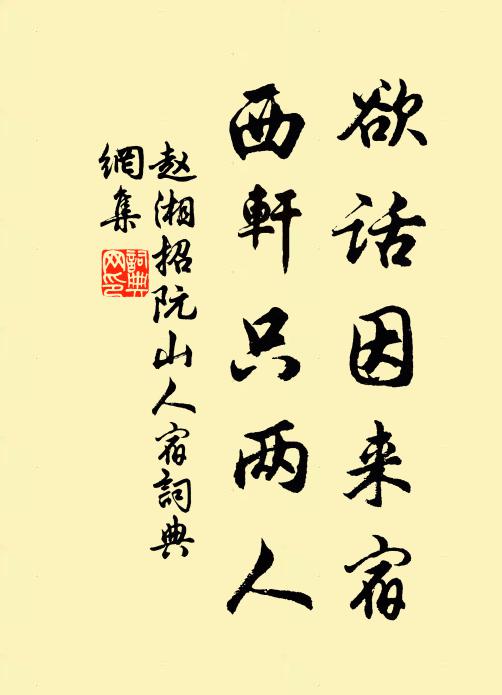 欲话因来宿
西軒只两人
赵湘招阮山人宿詞典
網集
詞典网印